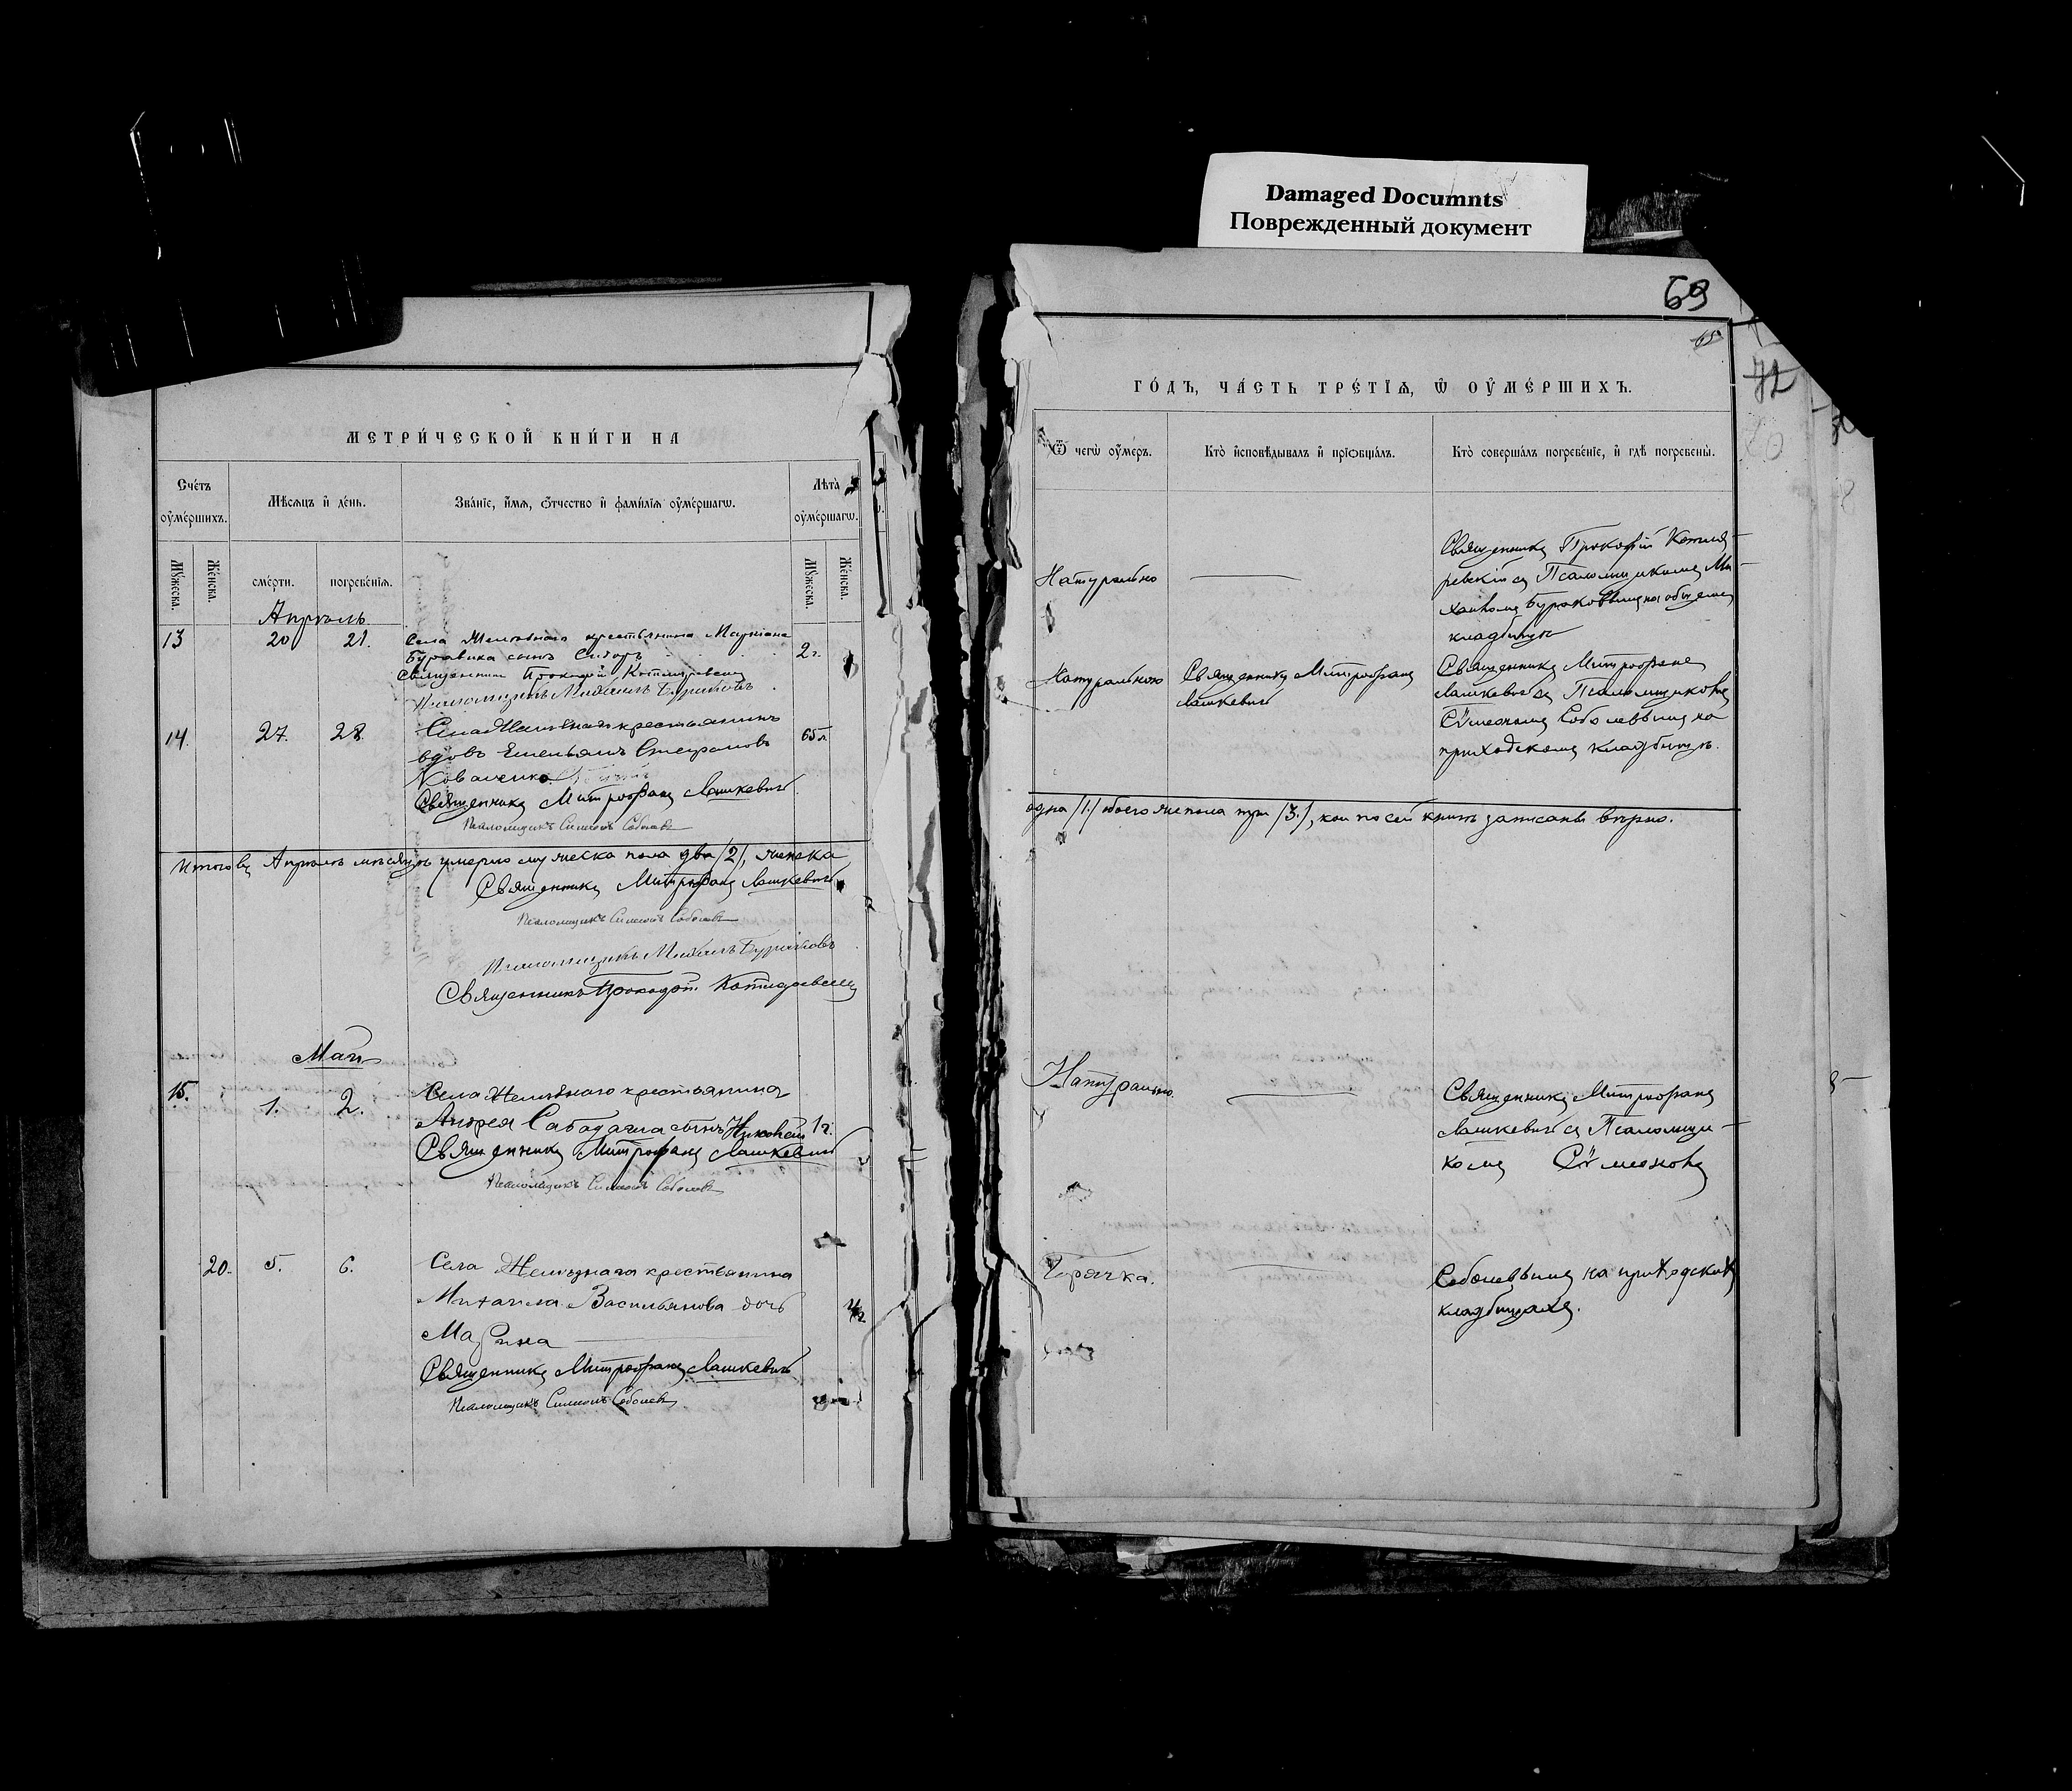 Damaged Documnts
Поврежденный документ
МЕТРИ́ЧЕСКОЙ КНИ́ГИ НА
Сче́тъ оу҆ме́ршихъ.
Мѣ́сяцъ и҆ де́нь.
Зва́нїе, и҆́мя, ѻ҆́тчество и҆ фами́лїя оу҆ме́ршагѡ.
Лѣта̀ оу҆ме́ршагѡ.
Мꙋ́жеска.
Же́нска.
сме́рти.
погребе́нїя.
Мꙋ́жеска.
Же́нска.
Апрѣль
13 20 21. Села Желѣзнаго крестьянина Маркіана 2 г.
сынъ Сидоръ
Священникъ Прокофій Котляревскій
Псаломщикъ Михаилъ Бураковъ
14. 27. 28. Села Желѣзнаго крестьянинъ 65 л.
вдовъ Емельянъ Стефановъ
Коваленко
Священникъ Митрофанъ Лашкевичъ
Псаломщикъ Симеонъ Соболевъ
Итого въ Апрѣлѣ мѣсяцѣ умерло мужеска пола два /2/, женска
Священникъ Митрофанъ Лашкевичъ
Псаломщикъ Симеонъ Соболевъ
Псаломщикъ Михаилъ Бураковъ
Священникъ Прокофій Котляревскій
Май
15. 1. 2. Села Желѣзнаго крестьянина
Андрея сынъ Николай 1 г.
Священникъ Митрофанъ Лашкевичъ
Псаломщикъ Симеонъ Соболевъ
20. 5. 6. Села Желѣзнаго крестьянина
Михаила Васильянова дочь
Марина
Священникъ Митрофанъ Лашкевичъ
Псаломщикъ Симеонъ Соболевъ
69
72
ГО́ДЪ, ЧА́СТЬ ТРЕ́ТЇѦ, Ѡ҆ ОУ҆МЕ́РШИХЪ.
Ѿ чегѡ̀ оу҆́меръ.
Кто̀ и҆сповѣ́дывалъ и҆ прїѻбща́лъ.
Кто̀ соверша́лъ погребе́нїе, и҆ гдѣ̀ погребены̀.
Натурально
Священникъ Прокофій Котля-
ревскій съ Псаломщикомъ Ми-
хаиломъ Бураковымъ на общемъ
кладбищѣ
Натуральною
Священникъ Митрофанъ
Лашкевичъ
Священникъ Митрофанъ
Лашкевичъ съ Псаломщикомъ
Сѵмеономъ Соболевымъ на
приходскомъ кладбищѣ.
одна /1./ обоего же пола три /3./, кои по сей книгѣ записаны вѣрно.
Натурально.
Священникъ Митрофанъ
Лашкевичъ съ Псаломщи-
комъ Сѵмеономъ
Горячка.
Соболевымъ на приходскихъ
кладбищахъ.